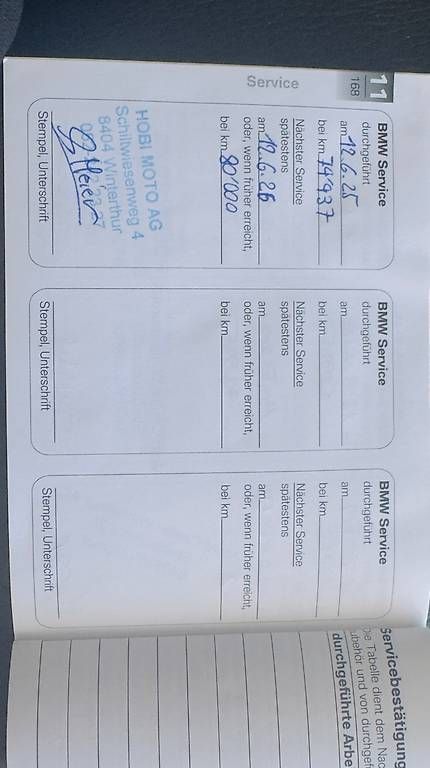 11
168
Service
BMW Service
durchgeführt
am 12.6.25
bei km 74'937
Nächster Service
spätestens
am 12.6.26
oder, wenn früher erreicht,
bei km 80'000
HOBI MOTO AG
Schiltwiesenweg 4
8404 Winterthur
Stempel, Unterschrift
BMW Service
durchgeführt
am
bei km
Nächster Service
spätestens
am
oder, wenn früher erreicht,
bei km
Stempel, Unterschrift
BMW Service
durchgeführt
am
bei km
Nächster Service
spätestens
am
oder, wenn früher erreicht,
bei km
Stempel, Unterschrift
Servicebestätigung
Die Tabelle dient dem Nac
ubehör und von durchgef
durchgeführte Arbe